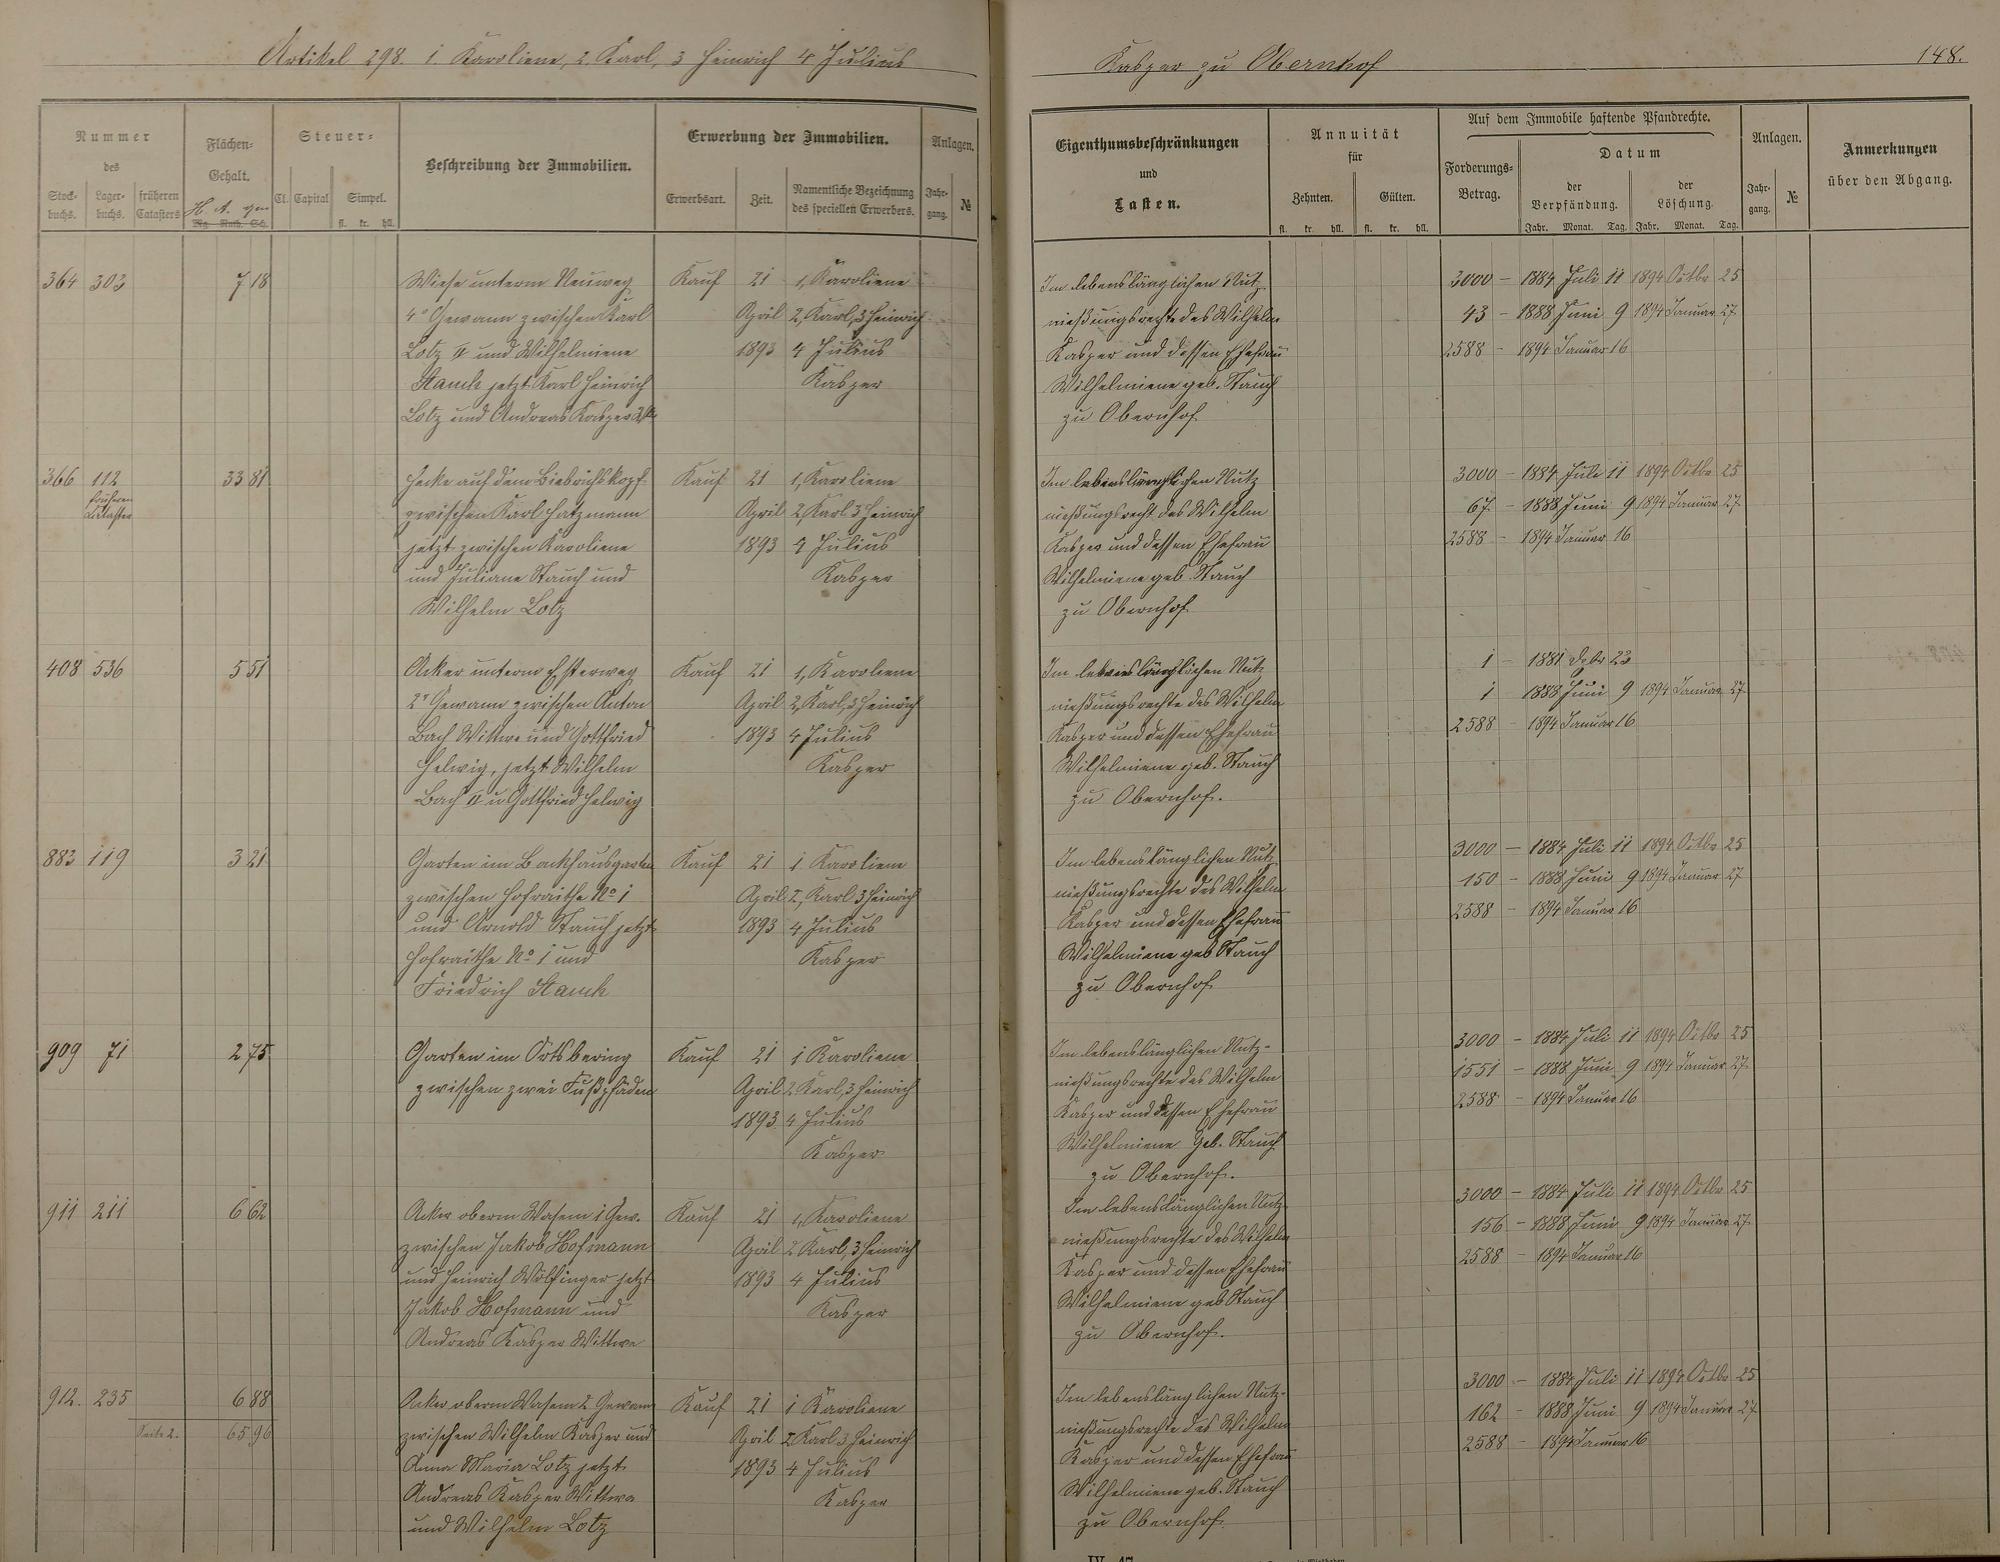 Artikel 298. 1. Karoliene, 2. Karl, 3 Heinrich 4 Julius
Nummer des
Stock-buchs. Lager-buchs. früheren Catasters
Flächen-Gehalt.
H. A. qm
Mg. Ruth. Sch.
Steuer-
Cl. Capital Simpel.
fl. kr. hll.
Beschreibung der Immobilien.
Erwerbung der Immobilien.
Erwerbsart. Zeit. Namentliche Bezeichnung des speciellen Erwerbers.
Anlagen.
Jahr-gang. №
364 303 7 18 Wiese unterm Neuweg Kauf 21 1, Karoliene
4r Gewann zwischen Karl April 2, Karl, 3 Heinrich
Lotz II und Wilhelmiene 1893 4 Julius
Stauch jetzt Karl Heinrich Kasper
Lotz und Andreas Kasper
366 112 33 81 Hecke auf dem Biebrichskopf Kauf 21 1, Karoliene
früheren Cataster
zwischen Karl Hatzmann April 2, Karl 3 Heinrich
jetzt zwischen Karoliene 1893 4 Julius
und Juliane Stauch und Kasper
Wilhelm Lotz
408 536 5 51 Acker unterm Esterweg Kauf 21 1, Karoliene
2r Gewann zwischen Anton April 2, Karl, 3 Heinrich
Bach Wittwe und Gottfried 1893 4 Julius
Helwig, jetzt Wilhelm Kasper
Bach II u Gottfried Helwig
883 119 3 21 Garten im Backhausgarten Kauf 21 1 Karoliene
zwischen Hofraithe No 1 April 2, Karl 3 Heinrich
und Arnold Stauch jetzt 1893 4 Julius
Hofraithe No 1 und Kasper
Friedrich Stauch
909 71 2 75 Garten im Ortsbering Kauf 21 1 Karoliene
zwischen zwei Fußpfäden April 2 Karl, 3 Heinrich
1893 4 Julius
Kasper
911 211 6 62 Acker oberm Wasem 1 Gew. Kauf 21 1, Karoliene
zwischen Jakob Hofmann April 2 Karl, 3 Heinrich
und Heinrich Wölfinger jetzt 1893 4 Julius
Jakob Hofmann und Kasper
Andreas Kasper Wittwe
912. 235 6 88 Acker oberm Wasem 2 Gewann Kauf 21 1 Karoliene
Seite 2. 65 96 zwischen Wilhelm Kasper und April 2 Karl 3 Heinrich
Anna Maria Lotz jetzt 1893 4 Julius
Andreas Kasper Wittwe Kasper
und Wilhelm Lotz
Kasper zu Obernhof 148.
Eigenthumsbeschränkungen und Lasten.
Annuität für
Zehnten. Gülten.
fl. kr. hll. fl. kr. hll.
Auf dem Immobile haftende Pfandrechte.
Forderungs-Betrag.
Datum
der Verpfändung. der Löschung.
Jahr. Monat. Tag. Jahr. Monat. Tag.
Anlagen.
Jahr-gang. №
Anmerkungen über den Abgang.
Im lebenslänglichen Nutz 3000 – 1884 Juli 11 1894 Octbr 25
nießungsrechte des Wilhelm 43 – 1888 Juni 9 1894 Januar 27
Kasper und dessen Ehefrau 2588 – 1894 Januar 16
Wilhelmiene geb. Stauch
zu Obernhof
Im lebenslänglichen Nutz 3000 – 1884 Juli 11 1894 Octbr 25
nießungsrecht des Wilhelm 67 – 1888 Juni 9 1894 Januar 27
Kasper und dessen Ehefrau 2588 – 1894 Januar 16
Wilhelmiene geb. Stauch
zu Obernhof
Im lebenslänglichen Nutz 1 – 1881 Debr 23
nießungsrechte des Wilhelm 1 1888 Juni 9 1894 Januar 27
Kasper und dessen Ehefrau 2588 – 1894 Januar 16
Wilhelmiene geb. Stauch
zu Obernhof.
Im lebenslänglichen Nutz 3000 – 1884 Juli 11 1894 Octbr 25
nießungsrechte des Wilhelm 150 – 1888 Juni 9 1894 Januar 27
Kasper und dessen Ehefrau 2588 – 1894 Januar 16
Wilhelmiene geb Stauch
zu Obernhof
Im lebenslänglichen Nutz- 3000 – 1884 Juli 11 1894 Octbr 25
nießungsrechte des Wilhelm 1551 – 1888 Juni 9 1894 Januar 27
Kasper und dessen Ehefrau 2588 – 1894 Januar 16
Wilhelmiene geb. Stauch
zu Obernhof.
Im lebenslänglichen Nutz 3000 – 1884 Juli 11 1894 Octbr 25
nießungsrechte des Wilhelm 156 – 1888 Juni 9 1894 Januar 27
Kasper und dessen Ehefrau 2588 – 1894 Januar 16
Wilhelmiene geb Stauch
zu Obernhof.
Im lebenslänglichen Nutz- 3000 – 1884 Juli 11 1894 Octbr 25
nießungsrechte des Wilhelm 162 – 1888 Juni 9 1894 Januar 27
Kasper und dessen Ehefrau 2588 – 1894 Januar 16
Wilhelmiene geb. Stauch
zu Obernhof